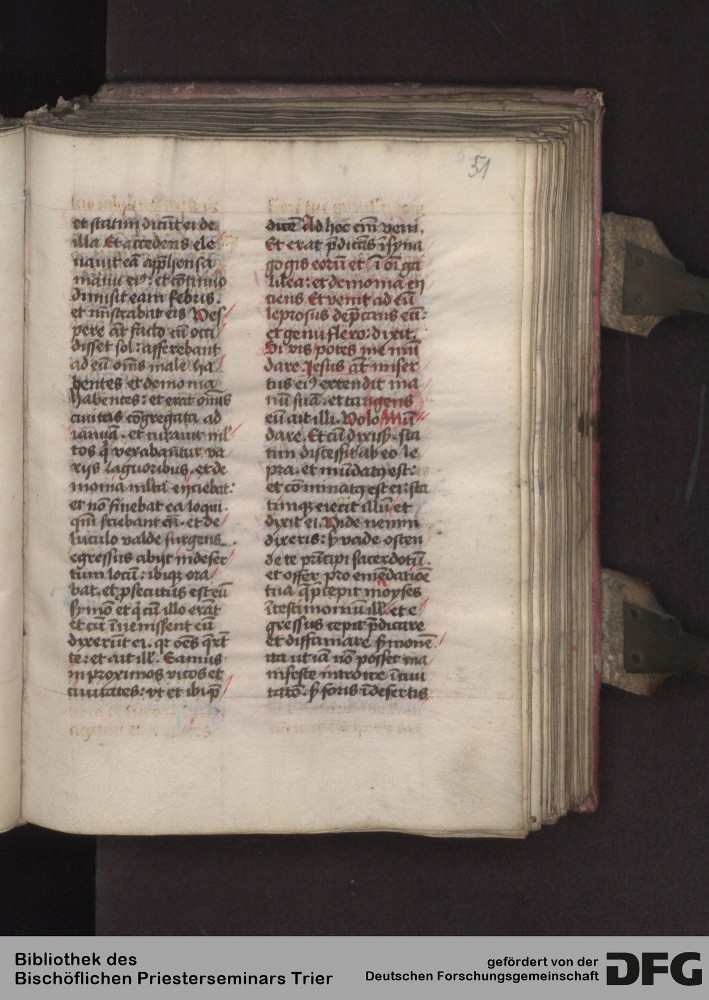 51
et statim dicūt ei de
illa Et accedens ele
uauit eā app̄hensa
manu eiꝰ: et cōtinuo
dimisit eam febris.
et mistrabat eis Ves
pere aūt facto cū occi
disset sol: afferebant
ad eū om̄s male ha
bentes et demonia
habentes: et erat om̄is
ciuitas cōgregata ad
ianuā. et curauit ml̄
tos q̄ vexabantur va
rijs lāguoribus. et de
monia mlta eijciebat:
et nō sinebat ea loqui.
qm̄ sciebant eū. et de
luculo valde surgens
egressus abijt in deser
tum locū: ibiqꝫ ora
bat. et psecutus est eū
symō et q̄ cū illo erāt
et cū īuenissent eū
dixerūt ei. qꝛ oēs q̄rūt
te: et ait ill'. Eamus
in proximos vicos et
ciuitates: vt et ibi p̄
dicē Ad hoc em̄ veni.
Et erat p̄dicās ī syna
gogis eorū et ī oī ga
lilea: et demonia eij
ciens Et venit ad eū
leprosus dep̄cans eū:
et genu flexo: dixit.
Si vis potes me mū
dare. Jesus aūt miser
tus eiꝰ extendit ma
nū suā. et tangens
eū ait illi. Volo Mū
dare. Et cū dixissꝫ. sta
tim discessit ab eo le
pra. et mūdatꝰ est:
et cōminatꝰ est ei: sta
timqꝫ eiecit illū et
dixit ei. Vide nemini
dixeris: sꝫ vade osten
de te pͥncipi sacerdotū.
et offer pro emēdatiōe
tua q̄ p̄cepit moyses
ī testimoniū ill'. et e
gressus cepit p̄dicare
et diffamare sermonē
ita ut iā nō posset ma
nifeste introire ī ciui
tatē. sꝫ foris ī desertis
Bibliothek des
Bischöflichen Priesterseminars Trier
gefördert von der
Deutschen Forschungsgemeinschaft
DFG